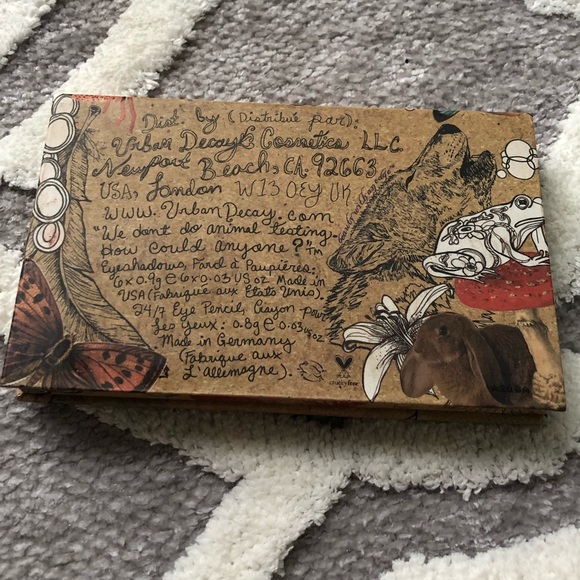 Dist. by (Distribué par):
Urban Decay® Cosmetics LLC
Newport Beach, CA. 92663
USA, London W13 0EY UK
www.UrbanDecay.com
"We don't do animal testing.
How could anyone?"™
Eyeshadows, Fard à Paupières:
6 x 0.9g e 6 x 0.03 US oz Made in
USA (Fabriqué aux États Unis).
24/7 Eye Pencil, Crayon pour
les yeux: 0.8g e 0.03 US oz
Made in Germany
(Fabriqué aux
L'allemagne).
cruelty free